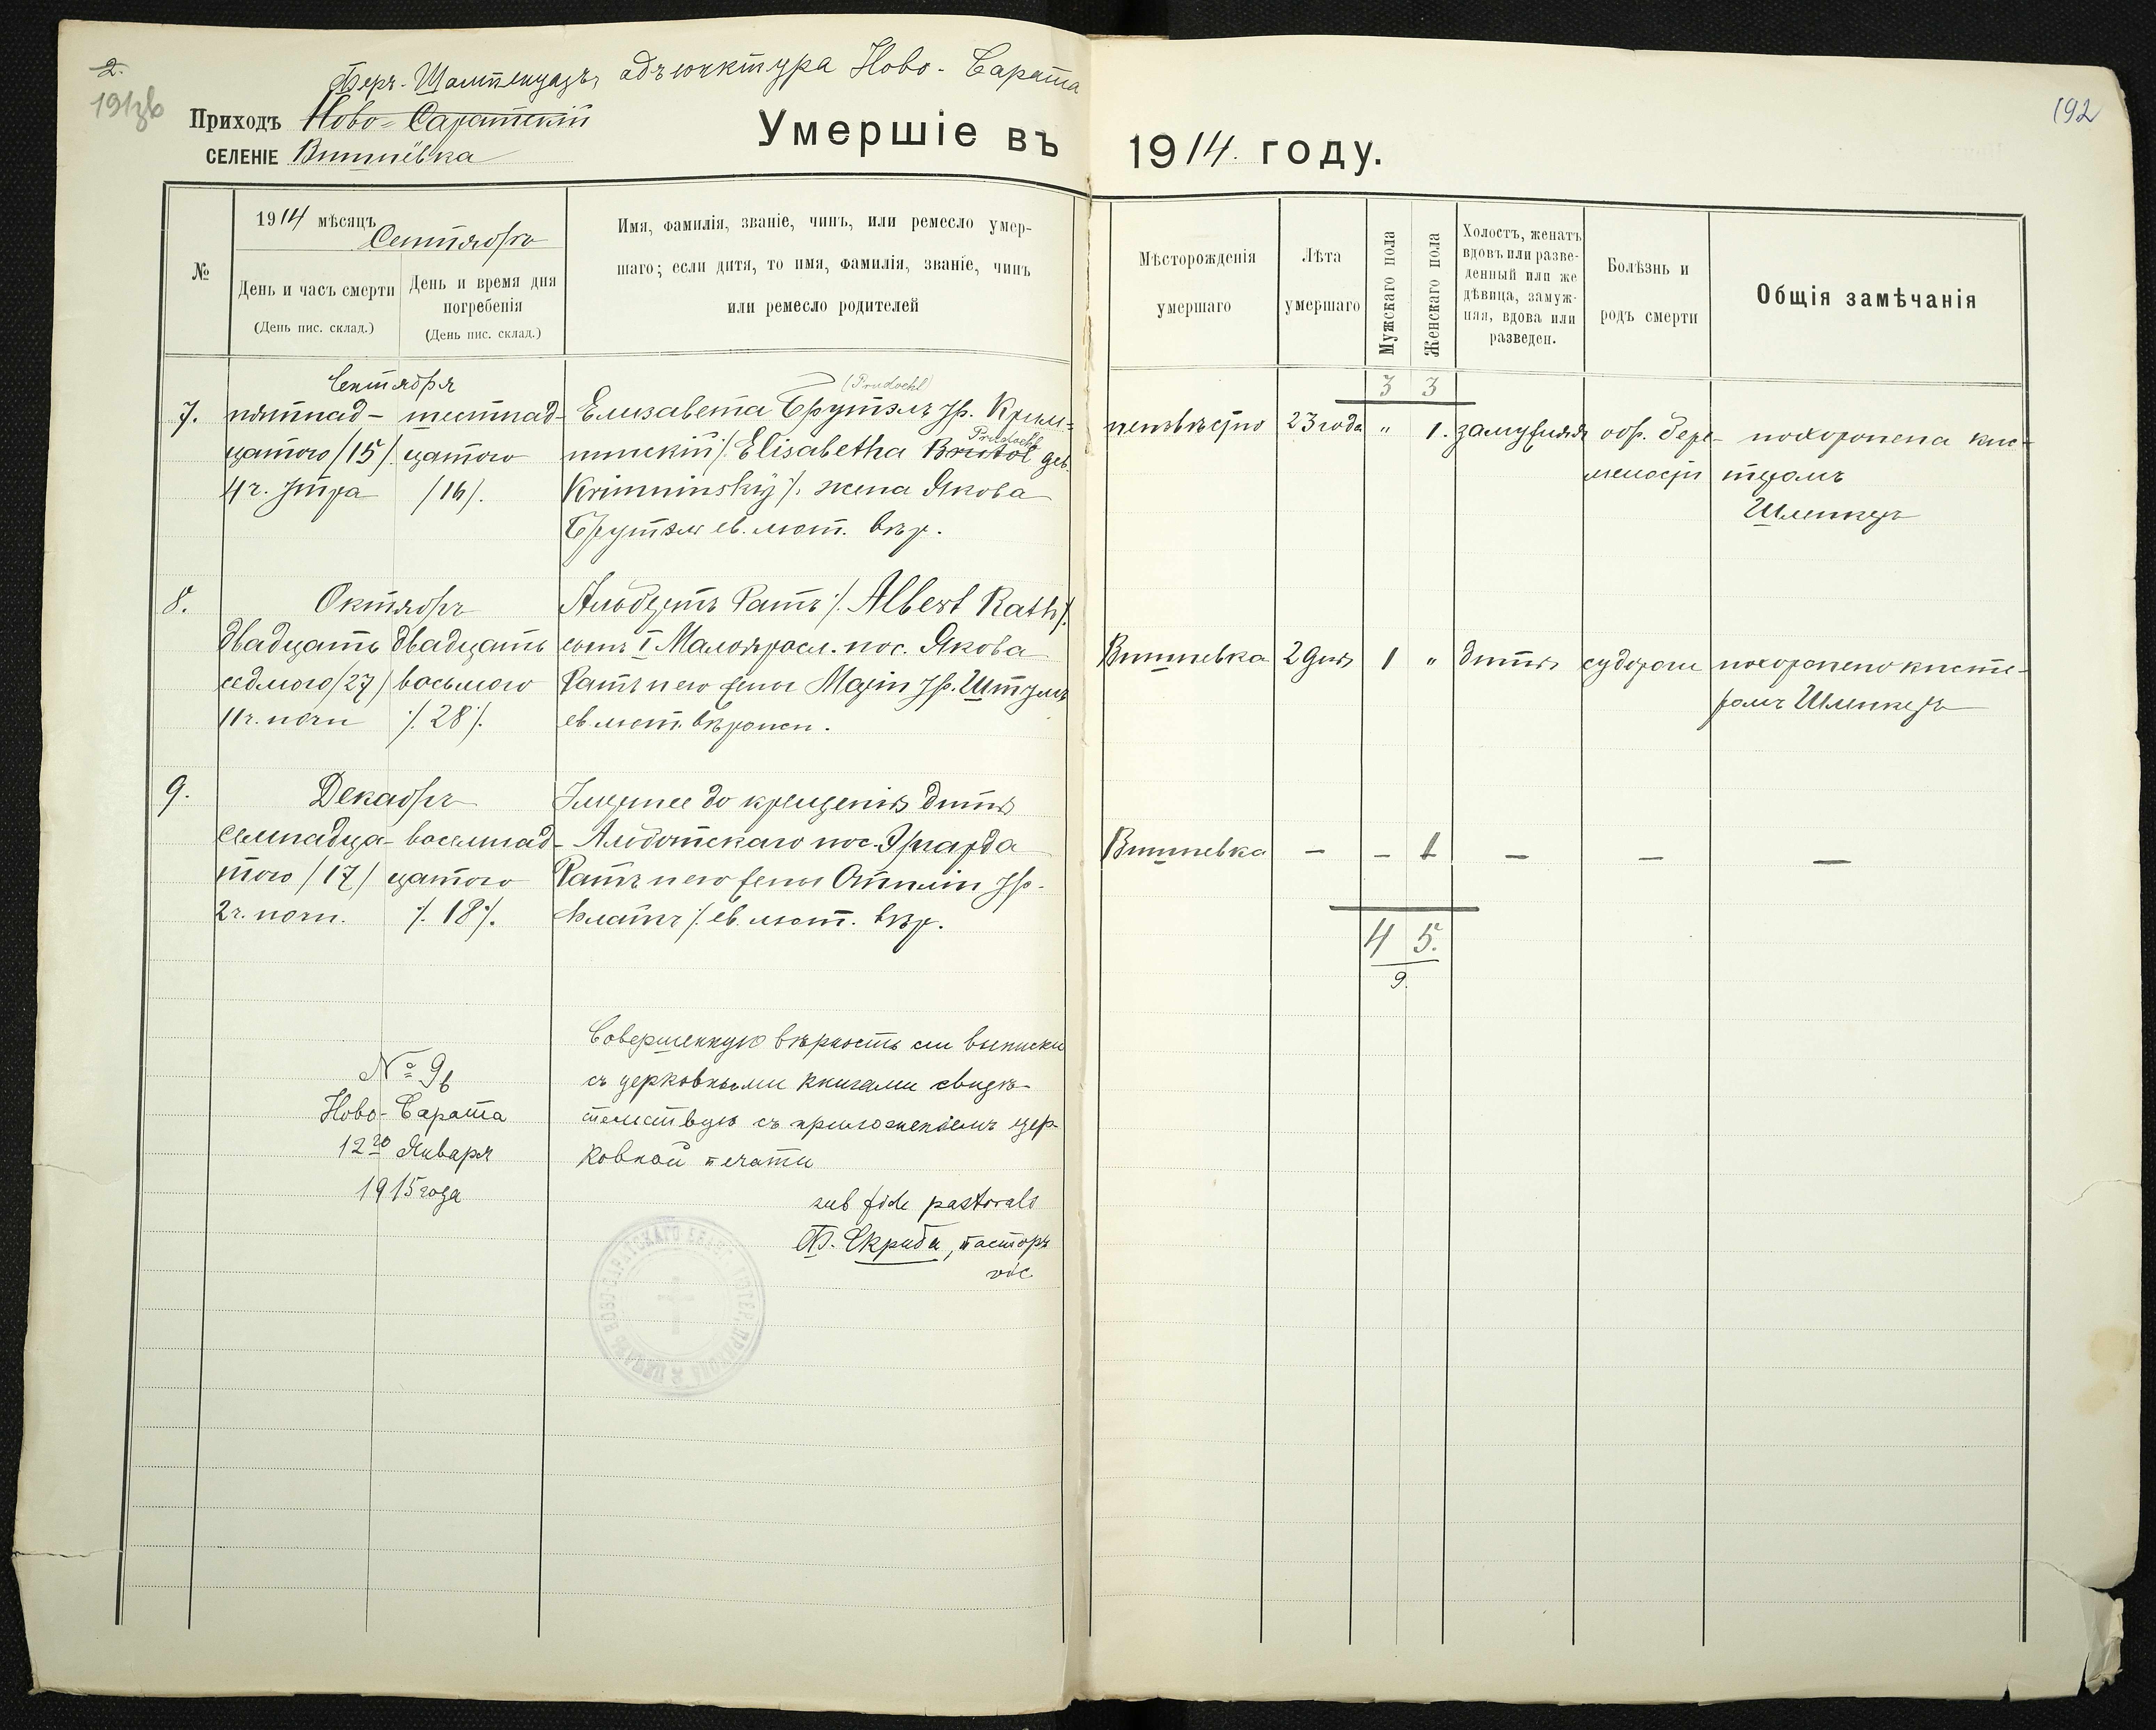 2.
191зв
Фер.-Шампенуазъ, адъюнктура Ново-Сарата
192
Приходъ Ново-Саратскій
селеніе Вишнёвка
Умершіе въ 1914. году.
№
1914 мѣсяцъ Сентябрь
День и часъ смерти
(День пис. склад.)
День и время дня погребенія
(День пис. склад.)
Имя, фамилія, званіе, чинъ, или ремесло умер-
шаго; если дитя, то имя, фамилія, званіе, чинъ
или ремесло родителей
Мѣсторожденія
умершаго
Лѣта
умершаго
Мужскаго пола
Женскаго пола
Холостъ, женатъ
вдовъ или разве-
денный или же
дѣвица, замуж-
няя, вдова или
разведен.
Болѣзнь и
родъ смерти
Общія замѣчанія
3 3
7.
Сентября
пятнад-
цатого /15/.
4 ч. утра
шестнад-
цатого
/16/.
(Prudoehl)
Елизавета Брутэль ур. Крим-
Prudoehl
минскій /. Elisabetha Bristol geb.
Krimninsky /. жена Якова
Брутэля ев. лют. вѣр.
неизвѣстно
23 года
" 1.
замужняя
обр. бере-
менности
похоронена кис-
теромъ
Шленкеръ
8.
Октябрь
двадцать
седмого /27/
11 ч. ночи
двадцать
восьмого
/. 28 /.
Альбертъ Ратъ /. Albert Rath /.
сынъ I Малояросл. пос. Якова
Ратъ и его жены Маріи ур. Штумъ
ев. лют. вѣроисп.
Вишневка
2 дня
1 "
дитя
судороги
похоронено кисте-
ромъ Шленкеръ
9.
Декабрь
семнадца-
того /17/
2 ч. ночи.
восемнад-
цатого
/. 18 /.
Умершее до крещенія дитя
пос. Эргарда
Ратъ и его жены Оттиліи ур.
/. ев. лют. вѣр.
Вишневка
— — 1 — — —
4 5.
9.
№ 96
Ново-Сарата
12го Января
1915 года
Совершенную вѣрность сей выписки
съ церковными книгами свидѣ-
тельствую съ приложеніемъ цер-
ковной печати
sub fide pastorali
Ѳ. Скриба, пасторъ
vic.